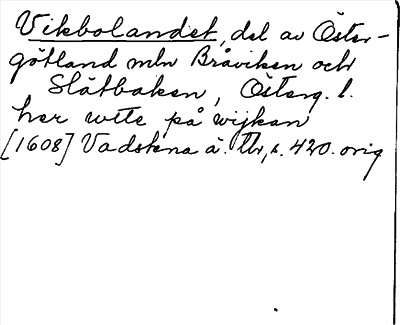 Vikbolandet, del av Öster-
götland mln Bråviken och
Slätbaken, Österg. l.
her wete på wijkan
[1608] Vadstena ä. Tb, s. 420. orig